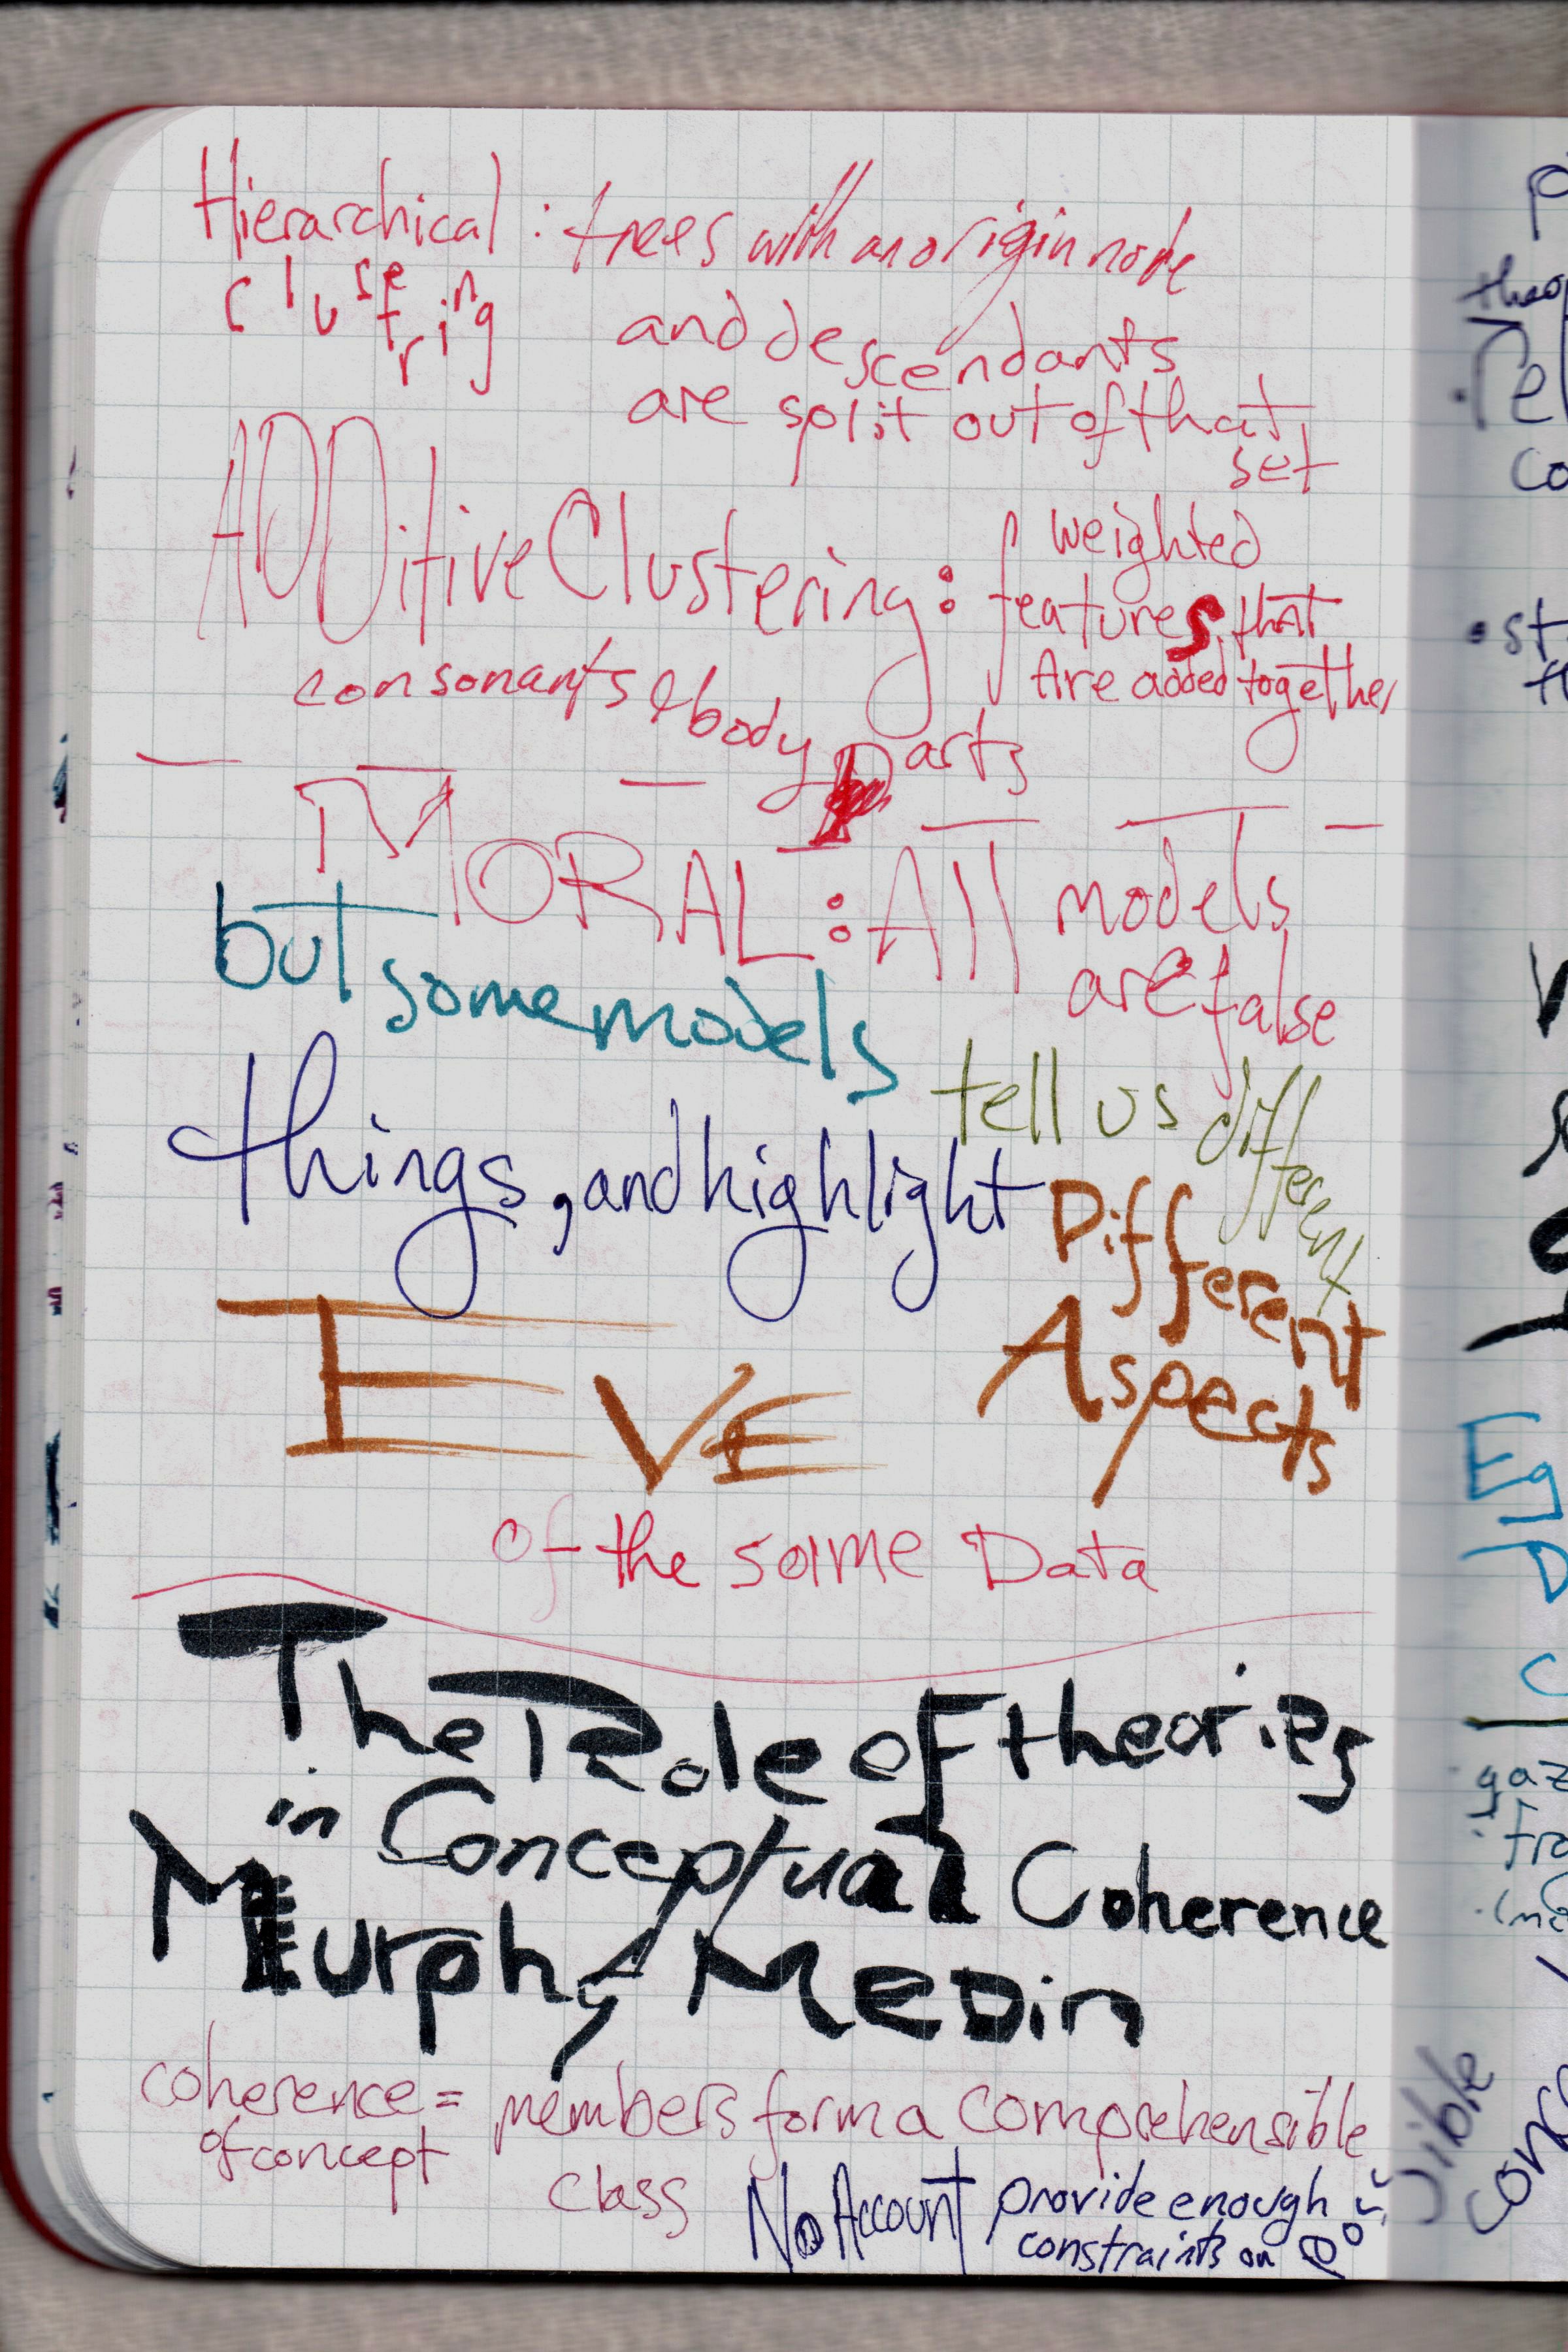 Hierarchical : trees with an origin node
clustering and descendants
are split out of that
set
ADDitive Clustering : weighted
features that
Are added together
consonants & body parts
MORAL : All models
are false
but some models
tell us different
things, and highlight Different
Aspects
EVE
of the same Data
The Role of theories
in Conceptual Coherence
Murphy Medin
coherence = members form a comprehensible
of concept class
No Account provide enough
constraints on
theo
rel
co
st
th
Eg
gaz
fro